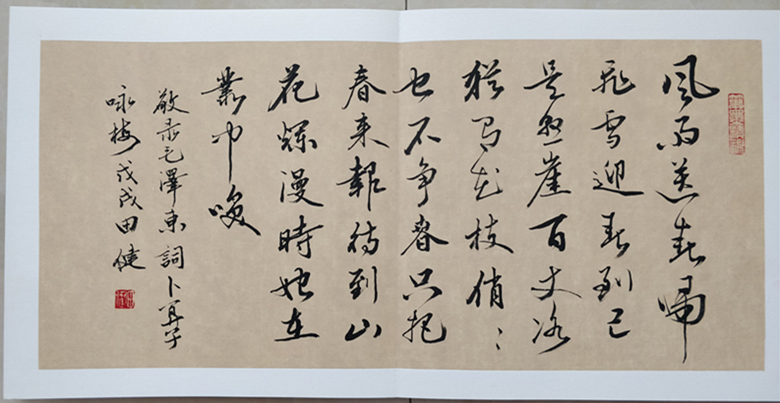 風雨送春歸
飛雪迎春到已
是懸崖百丈冰
猶有花枝俏〻
也不争春只把
春来報待到山
花爛漫時她在
叢中咲
敬录毛澤東詞卜算子
咏梅戊戌田健